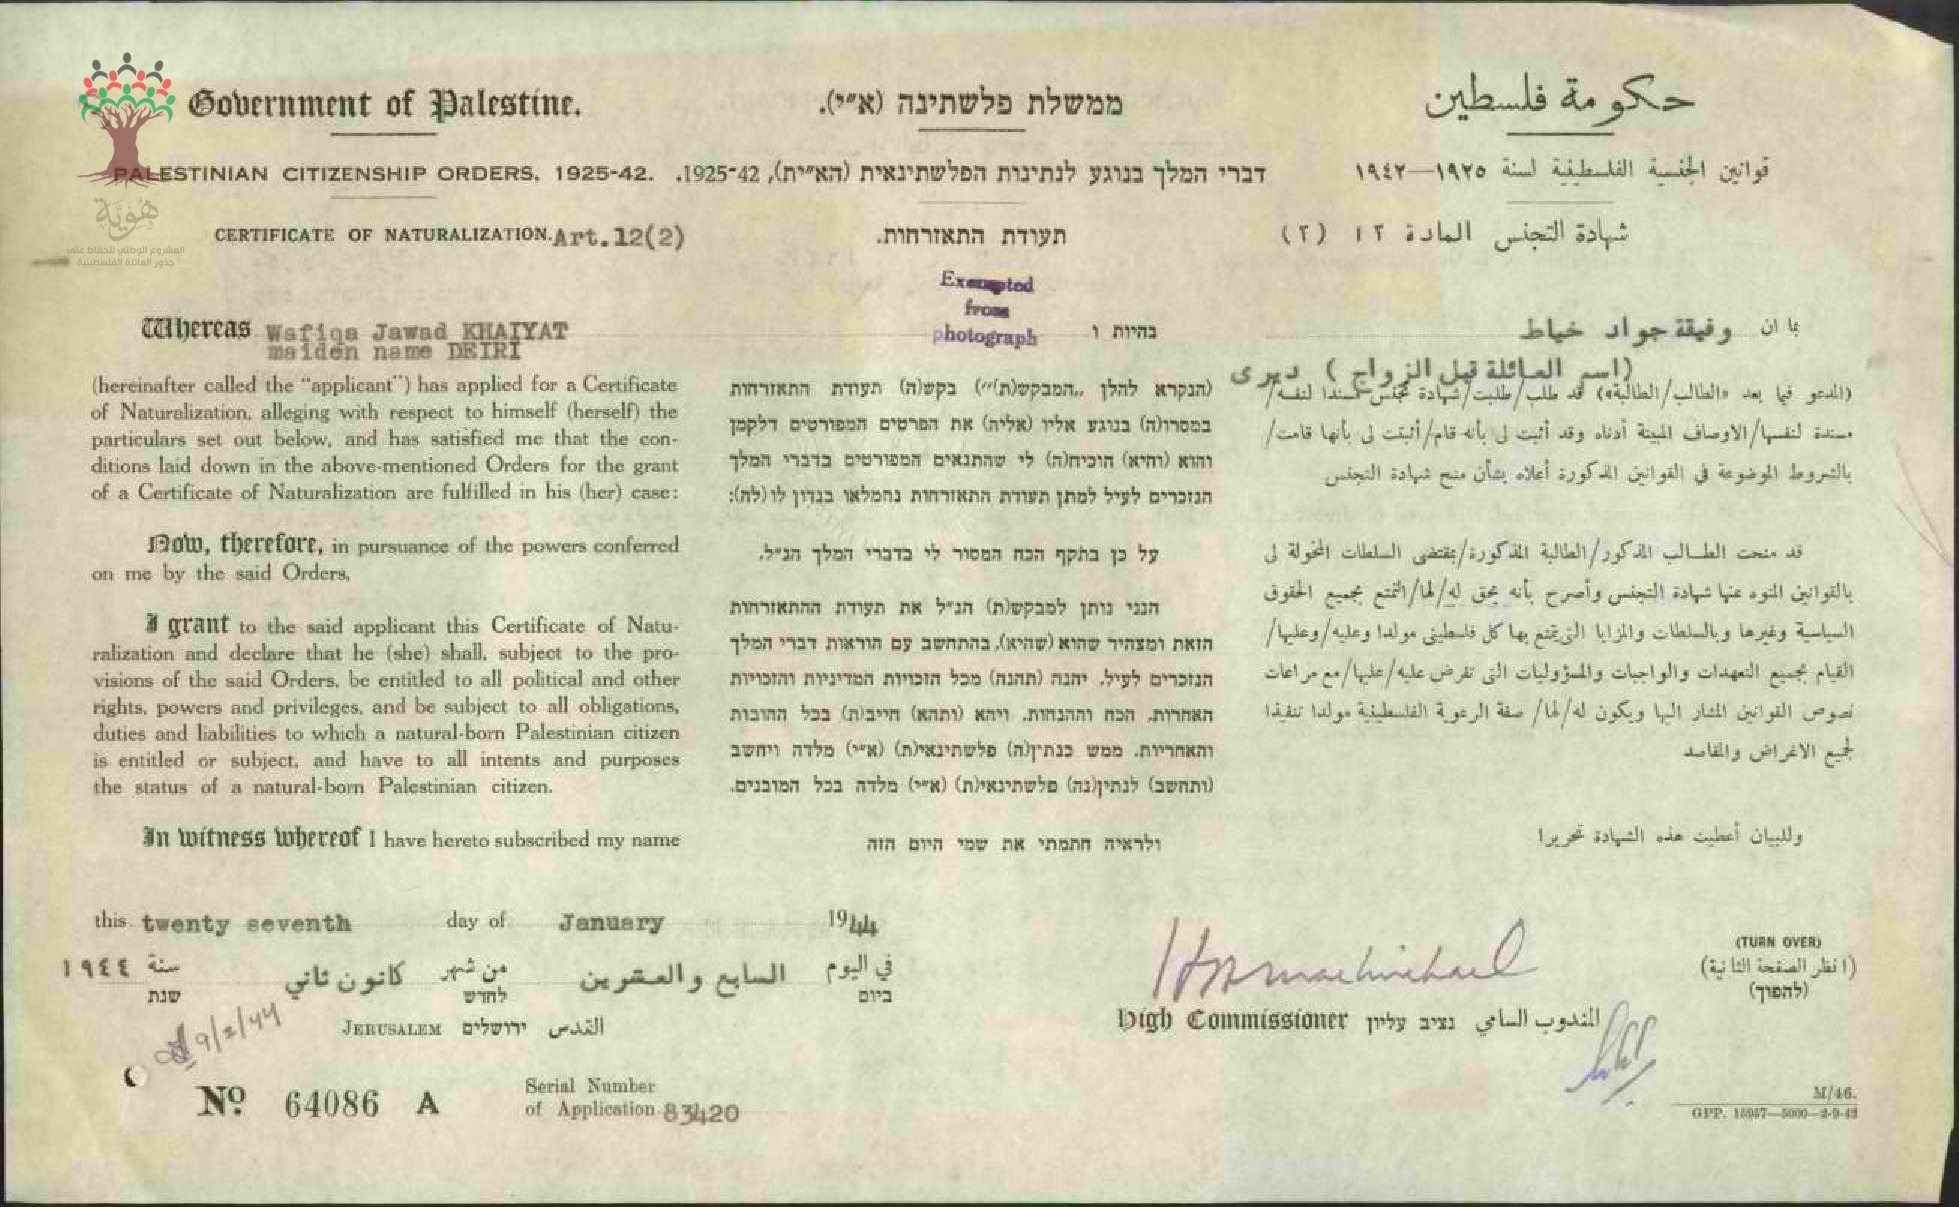 Government of Palestine.
PALESTINIAN CITIZENSHIP ORDERS, 1925-42.
CERTIFICATE OF NATURALIZATION. Art.12(2)
هُويَّة
المشروع الوطني للحفاظ على
جذور العائلة الفلسطينية
Whereas Wafiqa Jawad KHAIYAT
maiden name DEIRI
(hereinafter called the "applicant") has applied for a Certificate
of Naturalization, alleging with respect to himself (herself) the
particulars set out below, and has satisfied me that the con-
ditions laid down in the above-mentioned Orders for the grant
of a Certificate of Naturalization are fulfilled in his (her) case:
Now, therefore, in pursuance of the powers conferred
on me by the said Orders,
I grant to the said applicant this Certificate of Natu-
ralization and declare that he (she) shall, subject to the pro-
visions of the said Orders, be entitled to all political and other
rights, powers and privileges, and be subject to all obligations,
duties and liabilities to which a natural-born Palestinian citizen
is entitled or subject, and have to all intents and purposes
the status of a natural-born Palestinian citizen.
In witness whereof I have hereto subscribed my name
ממשלת פלשתינה (א״י).
דברי המלך בנוגע לנתינות הפלשתינאית (הא״ית), 1925-42.
תעודת התאזרחות.
Exempted
from
photograph
בהיות ו
(הנקרא להלן „המבקש(ת)״) בקש(ה) תעודת התאזרחות
במסרו(ה) בנוגע אליו (אליה) את הפרטים המפורטים דלקמן
והוא (והיא) הוכיח(ה) לי שהתנאים המפורטים בדברי המלך
הנזכרים לעיל למתן תעודת התאזרחות נתמלאו בנדון לו (לה):
על כן בתקף הכח המסור לי בדברי המלך הנ״ל.
הנני נותן למבקש(ת) הנ״ל את תעודת ההתאזרחות
הזאת ומצהיר שהוא (שהיא), בהתחשב עם הוראות דברי המלך
הנזכרים לעיל, יהנה (תהנה) מכל הזכויות המדיניות והזכויות
האחרות, הכח וההנחות, ויהא (ותהא) חייב(ת) בכל החובות
והאחריות, ממש כנתין(ה) פלשתינאי(ת) (א״י) מלדה ויחשב
(ותחשב) לנתין(נה) פלשתינאי(ת) (א״י) מלדה בכל המובנים.
ולראיה חתמתי את שמי היום הזה
حكومة فلسطين
قوانين الجنسية الفلسطينية لسنة ١٩٢٥—١٩٤٢
شهادة التجنس المادة ١٢ (٢)
بما ان وفيقة جواد خياط
(اسم العائلة قبل الزواج) ديرى
(المدعو فيما بعد «الطالب/الطالبة») قد طلب/طلبت/شهادة تجنس مسندا لنفسه/
مسندة لنفسها/الاوصاف المبينة أدناه وقد أثبت لى بأنه قام/أثبتت لى بأنها قامت/
بالشروط الموضوعة في القوانين المذكورة أعلاه بشأن منح شهادة التجنس
قد منحت الطالب المذكور/الطالبة المذكورة/بمقتضى السلطات المخولة لى
بالقوانين المنوه عنها شهادة التجنس وأصرح بأنه يحق له/لها/التمتع بجميع الحقوق
السياسية وغيرها وبالسلطات والمزايا التى يتمتع بها كل فلسطينى مولدا وعليه/وعليها/
القيام بجميع التعهدات والواجبات والمسؤوليات التى تفرض عليه/عليها/مع مراعات
نصوص القوانين المشار اليها ويكون له/لها/ صفة الرعوية الفلسطينية مولدا تنفيذا
لجميع الاغراض والمقاصد
وللبيان أعطيت هذه الشهادة تحريرا
this twenty seventh day of January 1944
في اليوم السابع والعشرين من شهر كانون ثاني سنة ١٩٤٤
ביום לחדש שנת
JERUSALEM ירושלים القدس
9/2/44
High Commissioner נציב עליון المندوب السامي
(TURN OVER)
(انظر الصفحة الثانية)
(להפוך)
No. 64086 A
Serial Number
of Application 83420
M/46.
GPP. 15957—5000—2-9-42